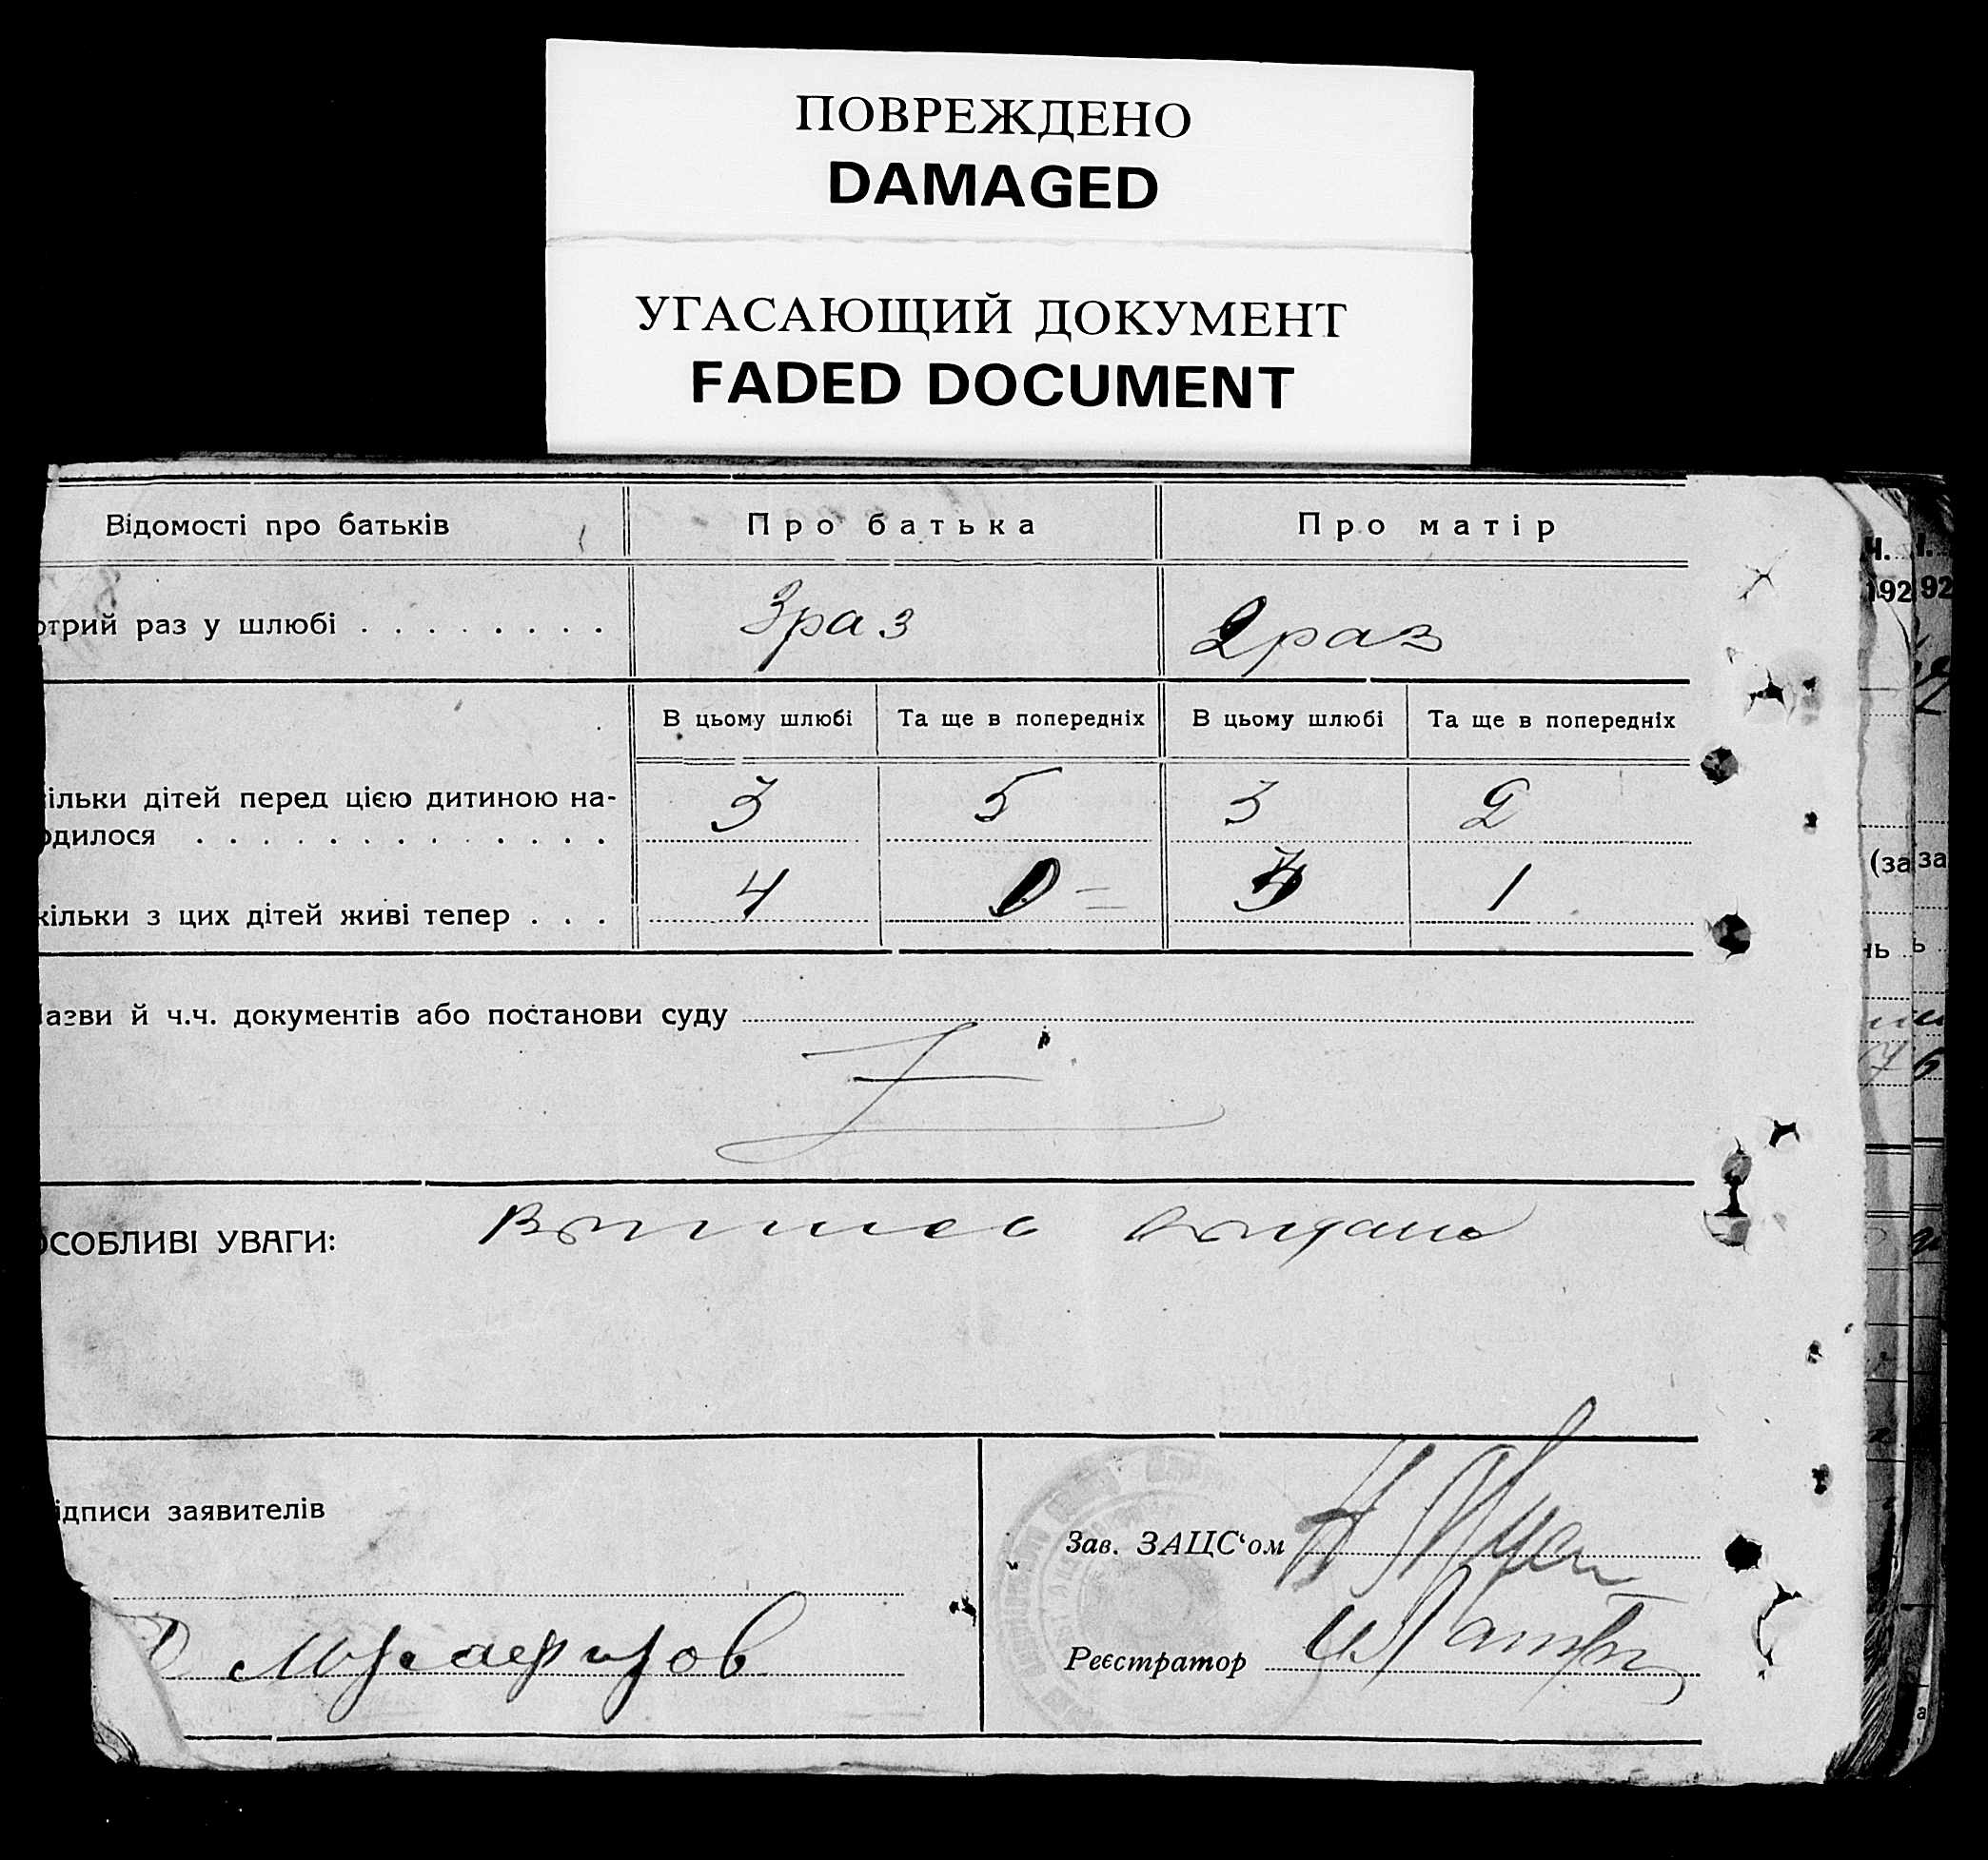 ПОВРЕЖДЕНО
DAMAGED
УГАСАЮЩИЙ ДОКУМЕНТ
FADED DOCUMENT
Відомості про батьків Про батька Про матір
отрий раз у шлюбі . . . . . . . . 3 раз 2 раз
В цьому шлюбі Та ще в попередніх В цьому шлюбі Та ще в попередніх
ільки дітей перед цією дитиною на-
одилося . . . . . . . . . . . . . 3 5 3 2
кільки з цих дітей живі тепер . . . 4 0 = 1
азви й ч.ч. документів або постанови суду
ОСОБЛИВІ УВАГИ:
ідписи заявителів
Зав. ЗАЦС‘ом
Реєстратор
ч.
192
92
(за
за
нь
ь